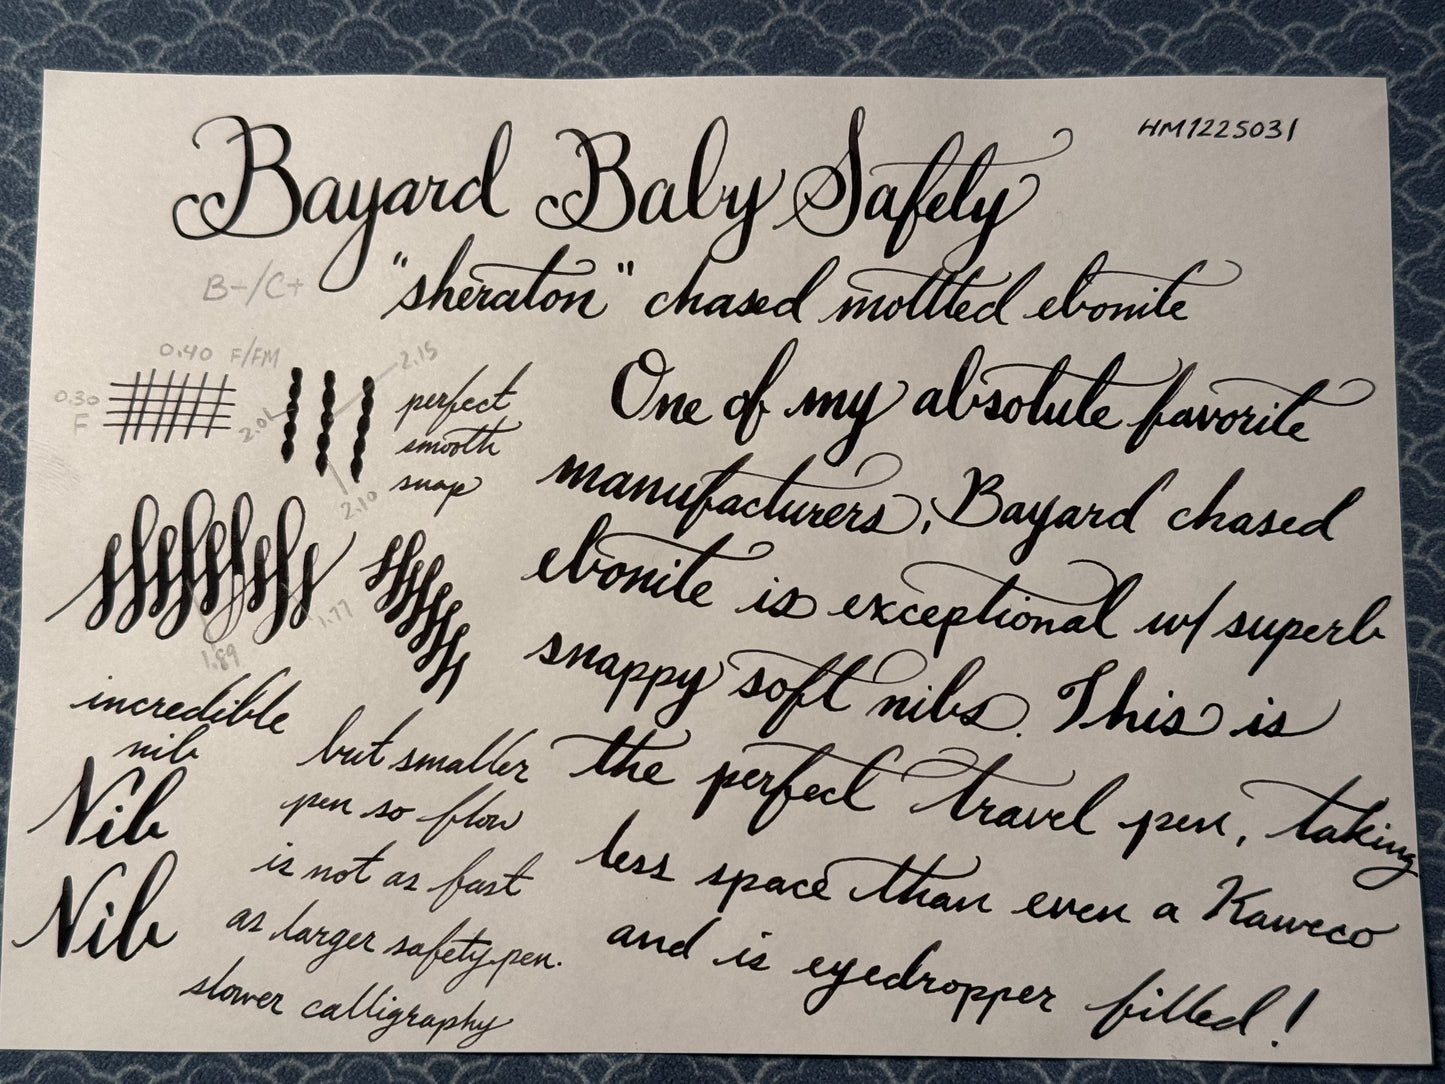 HM1225031
Bayard Baby Safety
"sheraton" chased mottled ebonite
B-/C+
0.40 F/FM
0.30
F
2.01
2.15
2.10
perfect
smooth
snap
1.77
1.89
One of my absolute favorite
manufacturers, Bayard chased
ebonite is exceptional w/ superb
snappy soft nibs. This is
the perfect travel pen, taking
less space than even a Kaweco
and is eyedropper filled!
incredible
nib
Nib
Nib
but smaller
pen so flow
is not as fast
as larger safety pen.
slower calligraphy